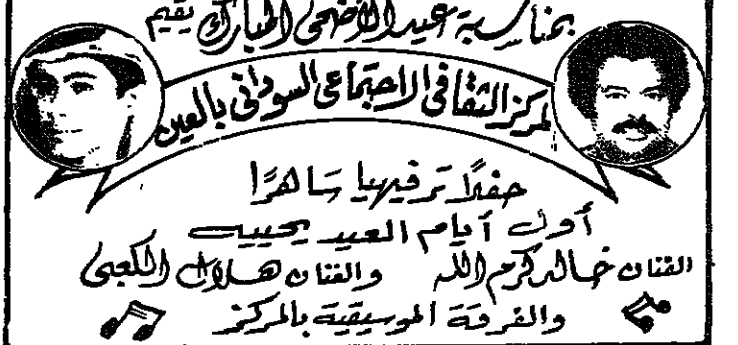 بمناسبة عيد الأضحى المبارك يقيم
المركز الثقافي الاجتماعي السوداني بالعين
حفلاً ترفيهيا ساهرًا
أول أيام العيد يحييه
الفنان خالد كرم الله والفنان هلال الكعبي
والفرقة الموسيقية بالمركز